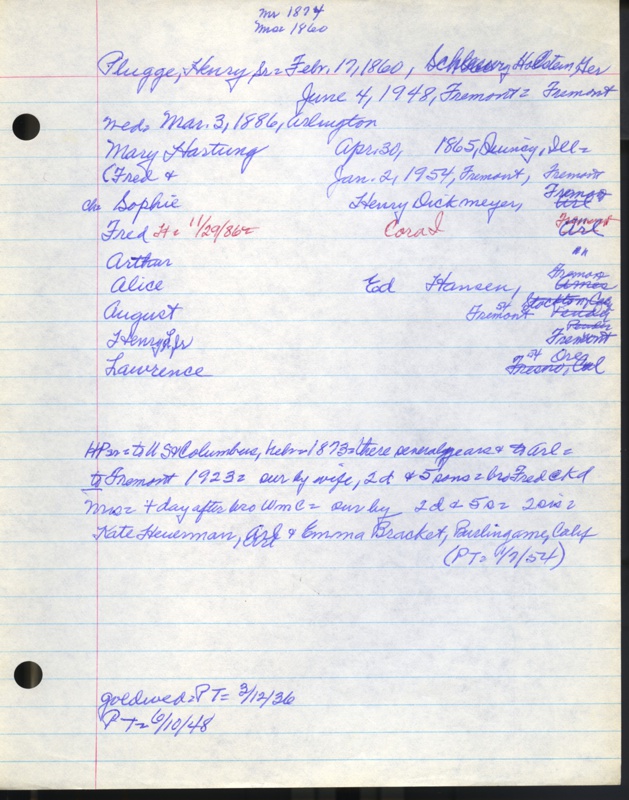 Mr 1874
Mrs 1860
Plugge, Henry, Sr = Febr. 17, 1860, Holstein, Ger
June 4, 1948, Fremont = Fremont
wed = Mar. 3, 1886, Arlington
Mary Hartung Apr. 30, 1865, Quincy, Ill =
(Fred & Jan. 2, 1954, Fremont, Fremont
ch = Sophie Henry Dickmeyer, Fremont Arl
Fred H = 11/29/86 = Cora I Fremont Arl
Arthur " "
Alice Ed Hansen, Fremont
August Fremont 54 Stockton, Cal
Henry, Jr Fremont
Lawrence 54 Ore Fresno, Cal
HP sr = to US & Columbus, Nebr = 1873 = there several years & to Arl =
to Fremont 1923 = sur by wife, 2 d & 5 sons = bro Fred ckd
Mrs = + day after bro Wm C = sur by 2 d & 5 s = 2 sis =
Kate Heuerman, Arl & Emma Bracket, Burlingame, Calif
(PT = 1/7/54)
goldwed = PT = 3/12/36
PT = 6/10/48